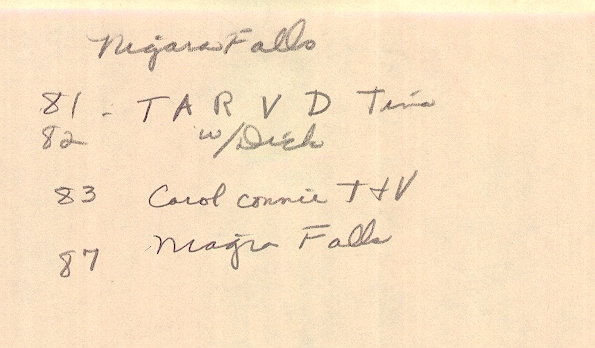 Nigara Falls
81 - T A R V D Tina
82 w/Dick
83 Carol connie T + V
87 Niagra Falls